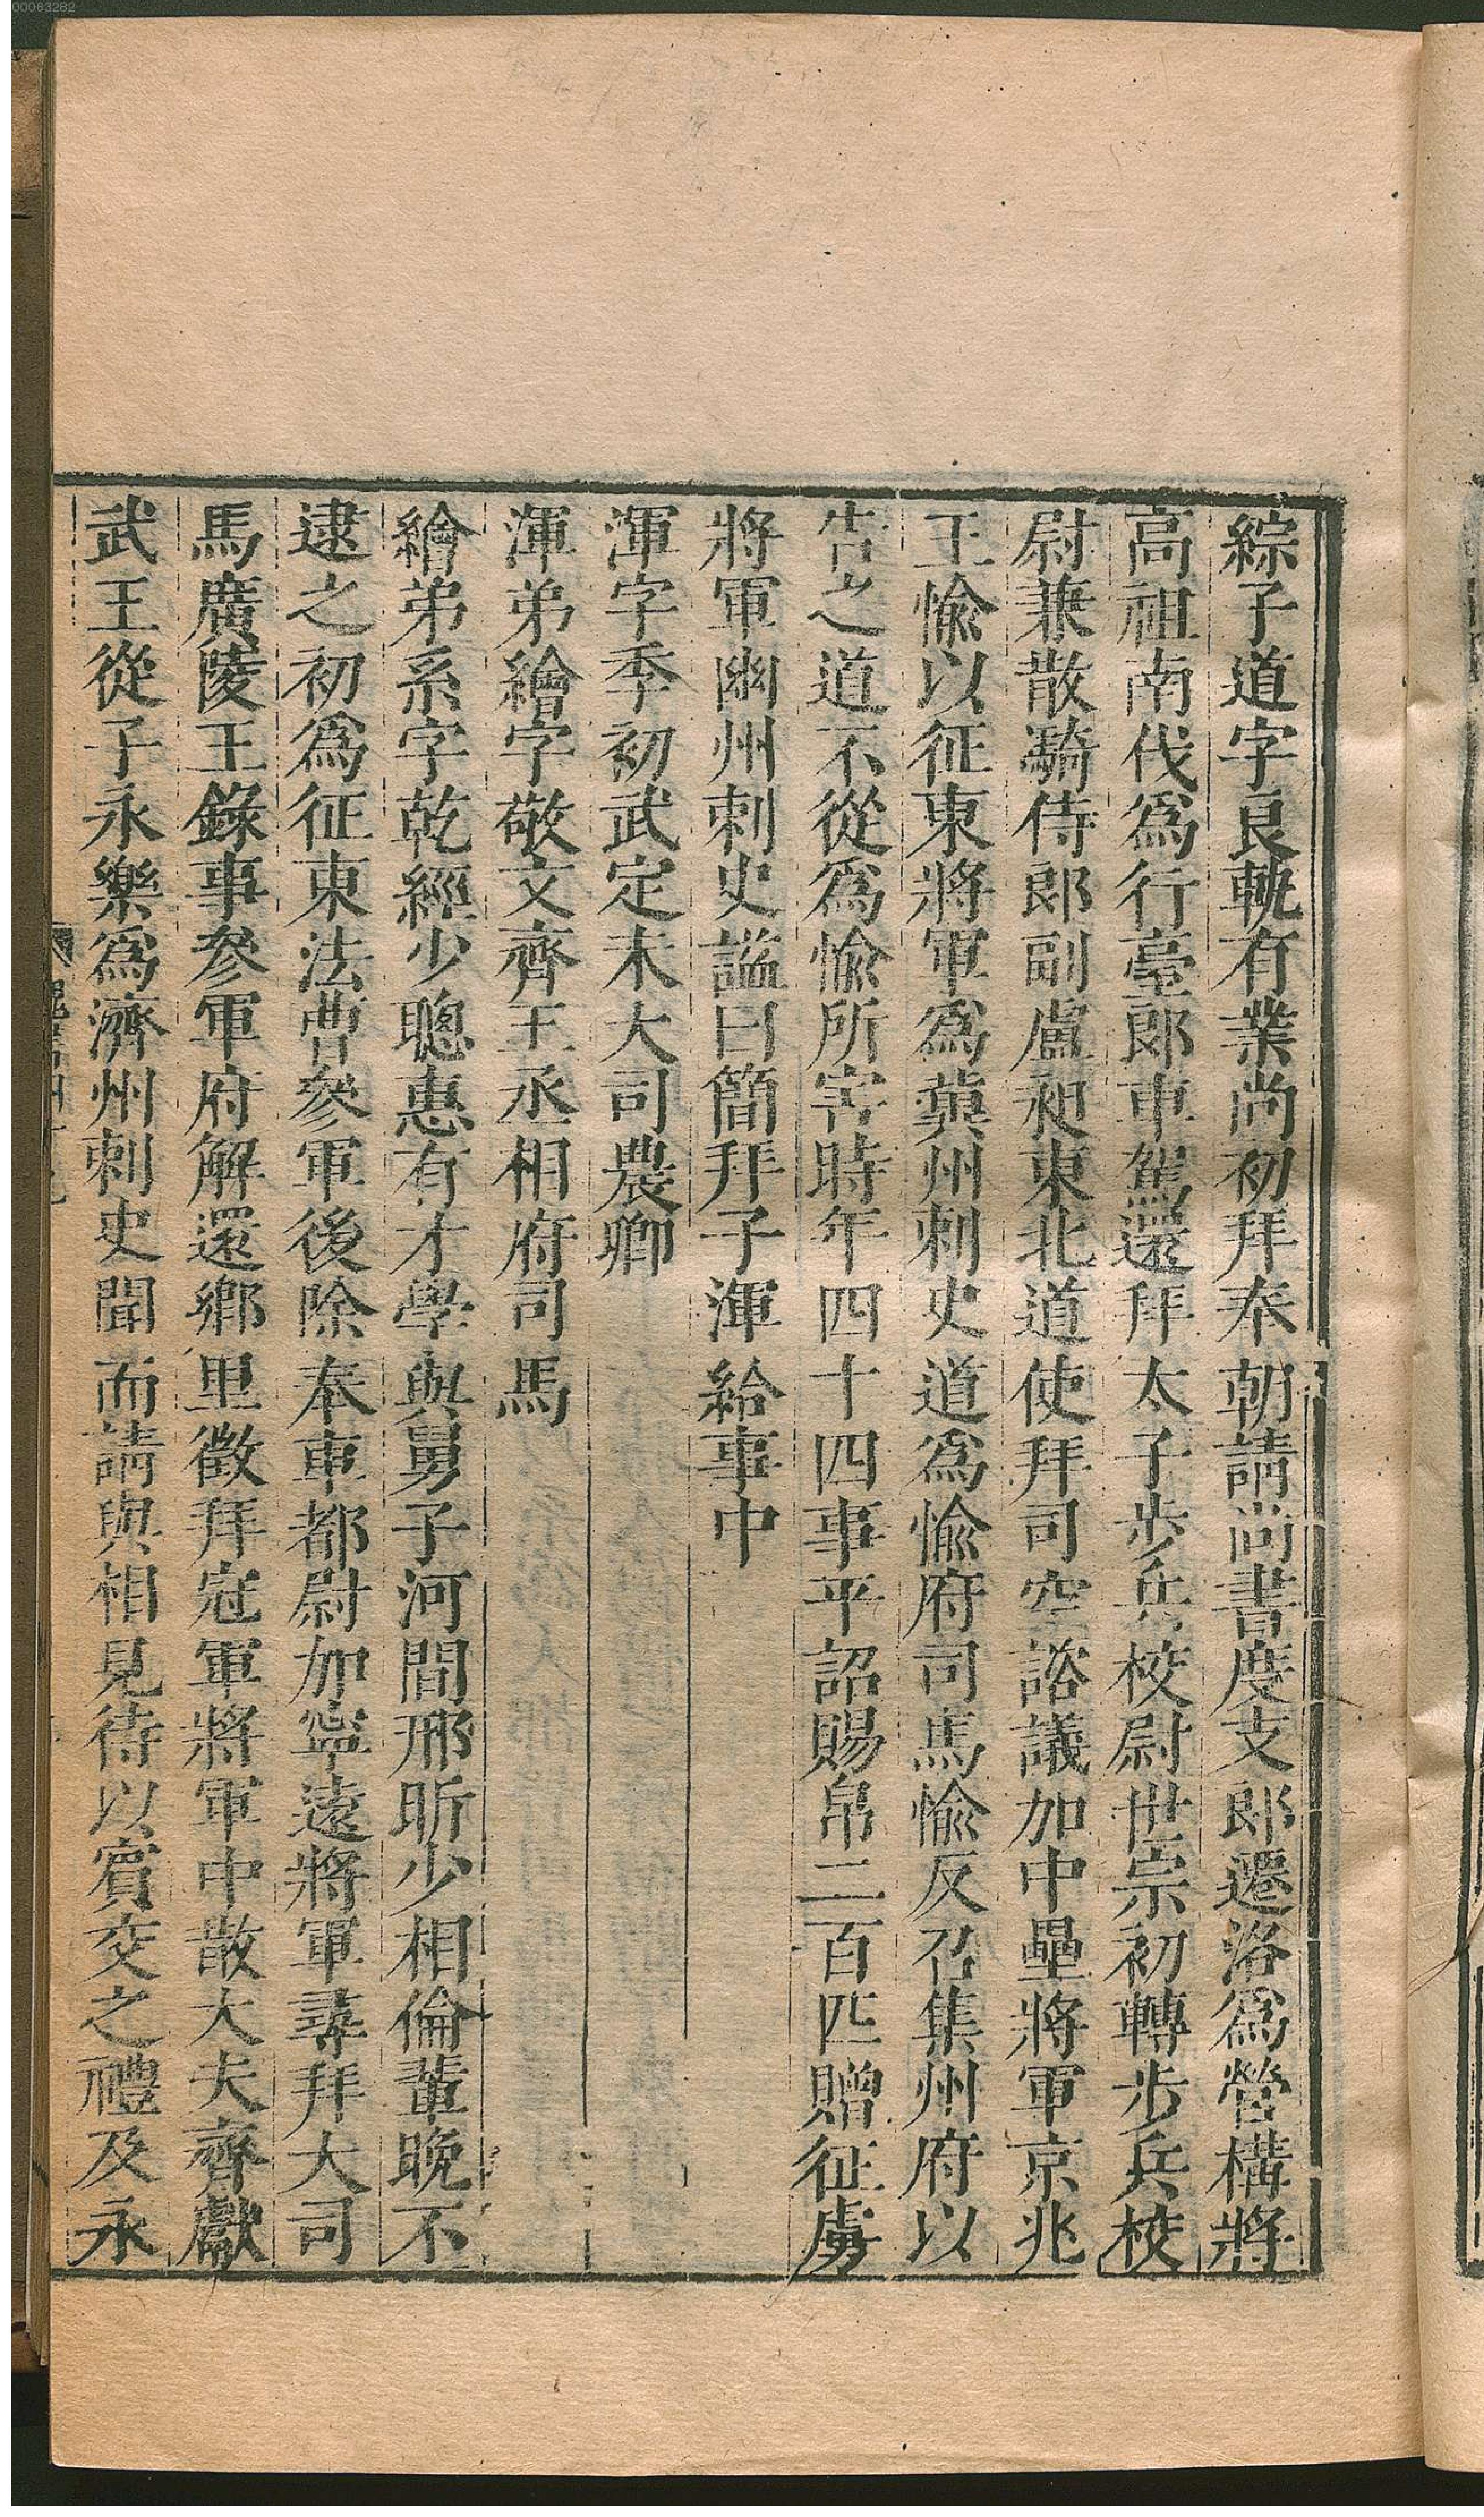 00063282
綜子道字良軌有業尚初拜奉朝請尚書度支郎遷洛爲營構將
高祖南伐爲行臺郎車駕還拜太子步兵校尉世宗初轉步兵校
尉兼散騎侍郎副盧昶東北道使拜司空諮議加中壘將軍京兆
王愉以征東將軍爲冀州刺史道爲愉府司馬愉反召集州府以
告之道不從爲愉所害時年四十四事平詔賜帛二百匹贈征虜
將軍幽州刺史謚曰簡拜子渾給事中
渾字季初武定末大司農卿
渾弟繪字敬文齊王丞相府司馬
繪弟系字乾經少聰惠有才學與舅子河間邢昕少相倫輩晚不
逮之初爲征東法曹參軍後除奉車都尉加寧遠將軍尋拜大司
馬廣陵王錄事參軍府解還鄉里徵拜冠軍將軍中散大夫齊獻
武王從子永樂爲濟州刺史聞而請與相見待以賓交之禮及永